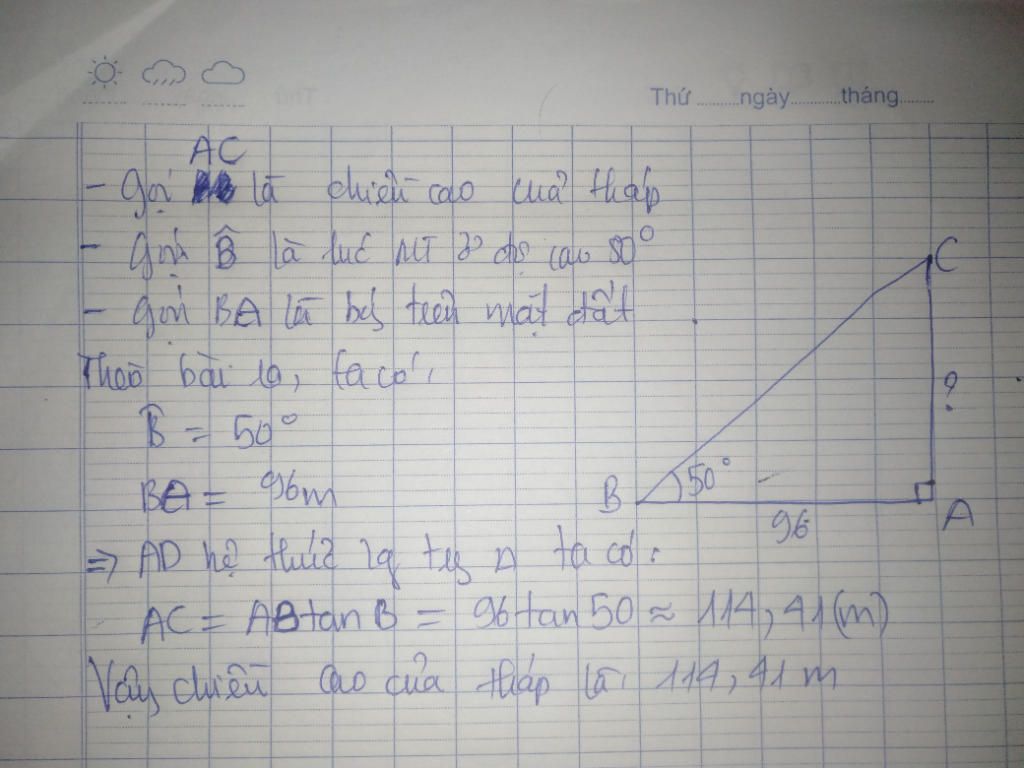 Thứ ........ngày..........tháng.......
AC
- Gọi là chiều cao của tháp
- Gọi B̂ là lúc MT ở độ cao 50°
- Gọi BA là bóng trên mặt đất
Theo bài ra, ta có:
B̂ = 50°
BA = 96m
=> AD hệ thức lg tg Δ ta có:
AC = ABtanB = 96tan50 ≈ 114,41(m)
Vậy chiều cao của tháp là: 114,41 m
C
?
B 50°
96 A